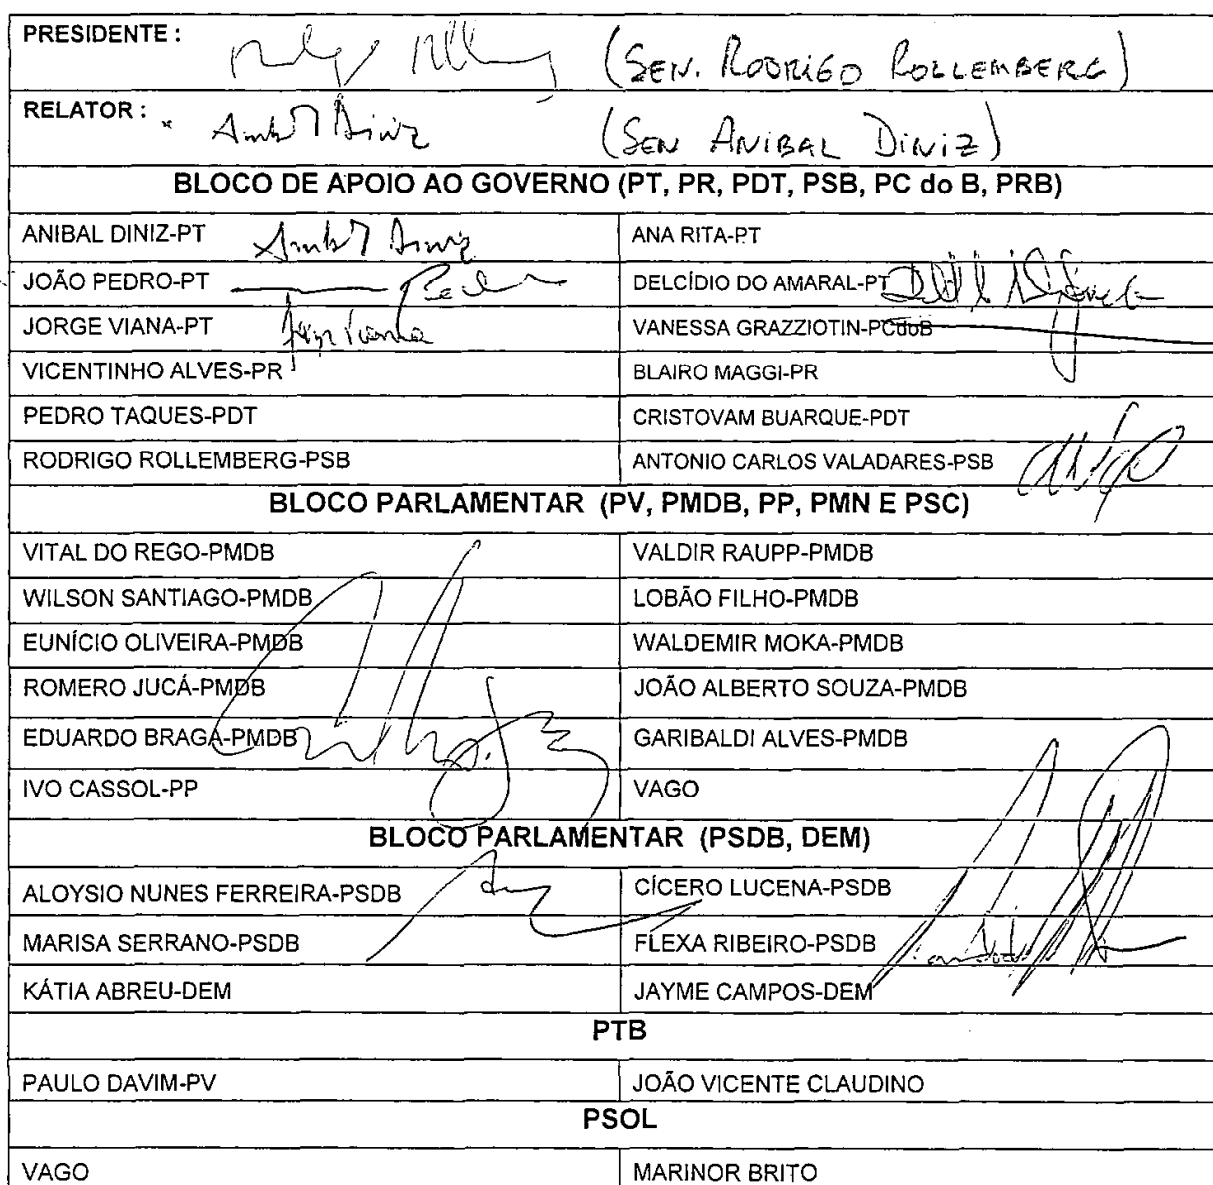 PRESIDENTE : (SEN. RODRIGO ROLLEMBERG)
RELATOR : Anibal Diniz (SEN ANIBAL DINIZ)
BLOCO DE APOIO AO GOVERNO (PT, PR, PDT, PSB, PC do B, PRB)
ANIBAL DINIZ-PT Anibal Diniz ANA RITA-PT
JOÃO PEDRO-PT DELCÍDIO DO AMARAL-PT
JORGE VIANA-PT Jorge Viana VANESSA GRAZZIOTIN-PCdoB
VICENTINHO ALVES-PR BLAIRO MAGGI-PR
PEDRO TAQUES-PDT CRISTOVAM BUARQUE-PDT
RODRIGO ROLLEMBERG-PSB ANTONIO CARLOS VALADARES-PSB
BLOCO PARLAMENTAR (PV, PMDB, PP, PMN E PSC)
VITAL DO REGO-PMDB VALDIR RAUPP-PMDB
WILSON SANTIAGO-PMDB LOBÃO FILHO-PMDB
EUNÍCIO OLIVEIRA-PMDB WALDEMIR MOKA-PMDB
ROMERO JUCÁ-PMDB JOÃO ALBERTO SOUZA-PMDB
EDUARDO BRAGA-PMDB GARIBALDI ALVES-PMDB
IVO CASSOL-PP VAGO
BLOCO PARLAMENTAR (PSDB, DEM)
ALOYSIO NUNES FERREIRA-PSDB CÍCERO LUCENA-PSDB
MARISA SERRANO-PSDB FLEXA RIBEIRO-PSDB
KÁTIA ABREU-DEM JAYME CAMPOS-DEM
PTB
PAULO DAVIM-PV JOÃO VICENTE CLAUDINO
PSOL
VAGO MARINOR BRITO